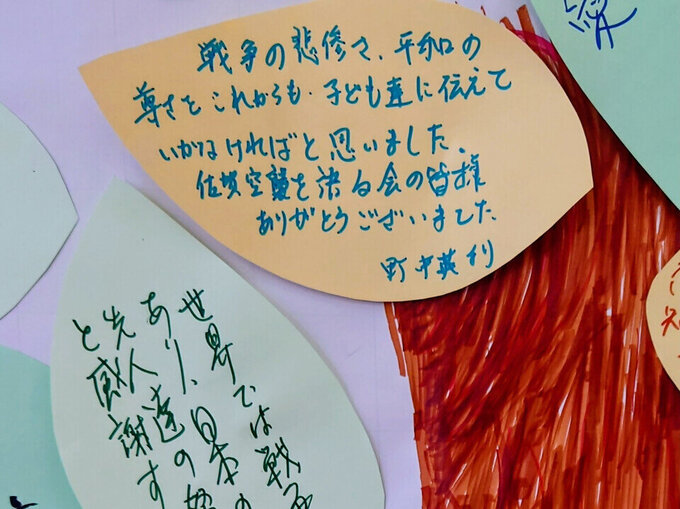 戦争の悲惨さ、平和の
尊さを これからも、子ども達に伝えて
いかなければと思いました。
佐賀空襲を語る会の皆様
ありがとうございました
町中英利
世界では戦争
あり、日本の
先人達の
と感謝す
愛